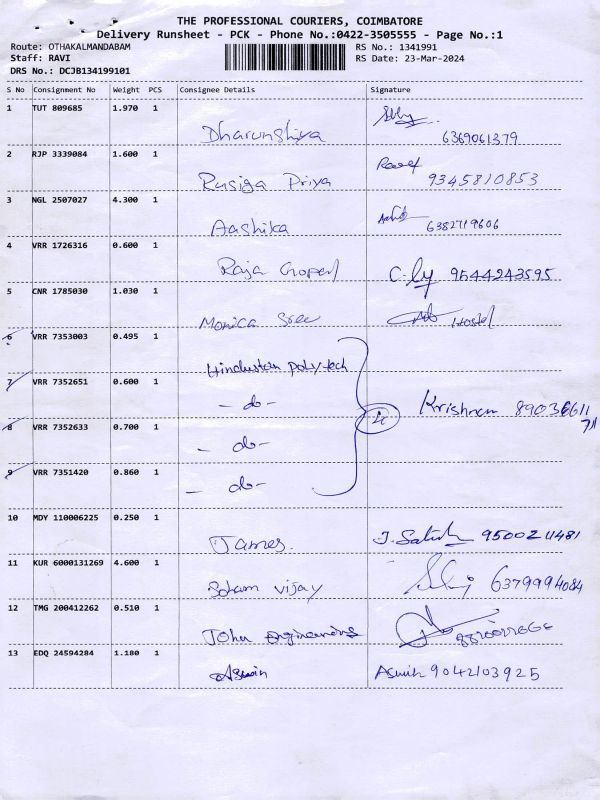 THE PROFESSIONAL COURIERS, COIMBATORE
Delivery Runsheet - PCK - Phone No.:0422-3505555 - Page No.:1
Route: OTHAKALMANDABAM RS No.: 1341991
Staff: RAVI RS Date: 23-Mar-2024
DRS No.: DCJB134199101
S No Consignment No Weight PCS Consignee Details Signature
1 TUT 809685 1.970 1
Dharunshiya 6369061379
2 RJP 3339084 1.600 1
Rusiga Priya 9345810853
3 NGL 2507027 4.300 1
Aashika 6382719606
4 VRR 1726316 0.600 1
Raja Gopal 9544243595
5 CNR 1785030 1.030 1
Monica Sree Hostel
6 VRR 7353003 0.495 1
Hindustan polytech
7 VRR 7352651 0.600 1
- do - 4 Krishnan
8 VRR 7352633 0.700 1
- do -
9 VRR 7351420 0.860 1
- do -
10 MDY 110006225 0.250 1
James. J. Satish 9500211481
11 KUR 6000131269 4.600 1
Soham vijay 6379994084
12 TMG 200412262 0.510 1
John engineering
13 EDQ 24594284 1.180 1
Aswin Aswin 9042103925